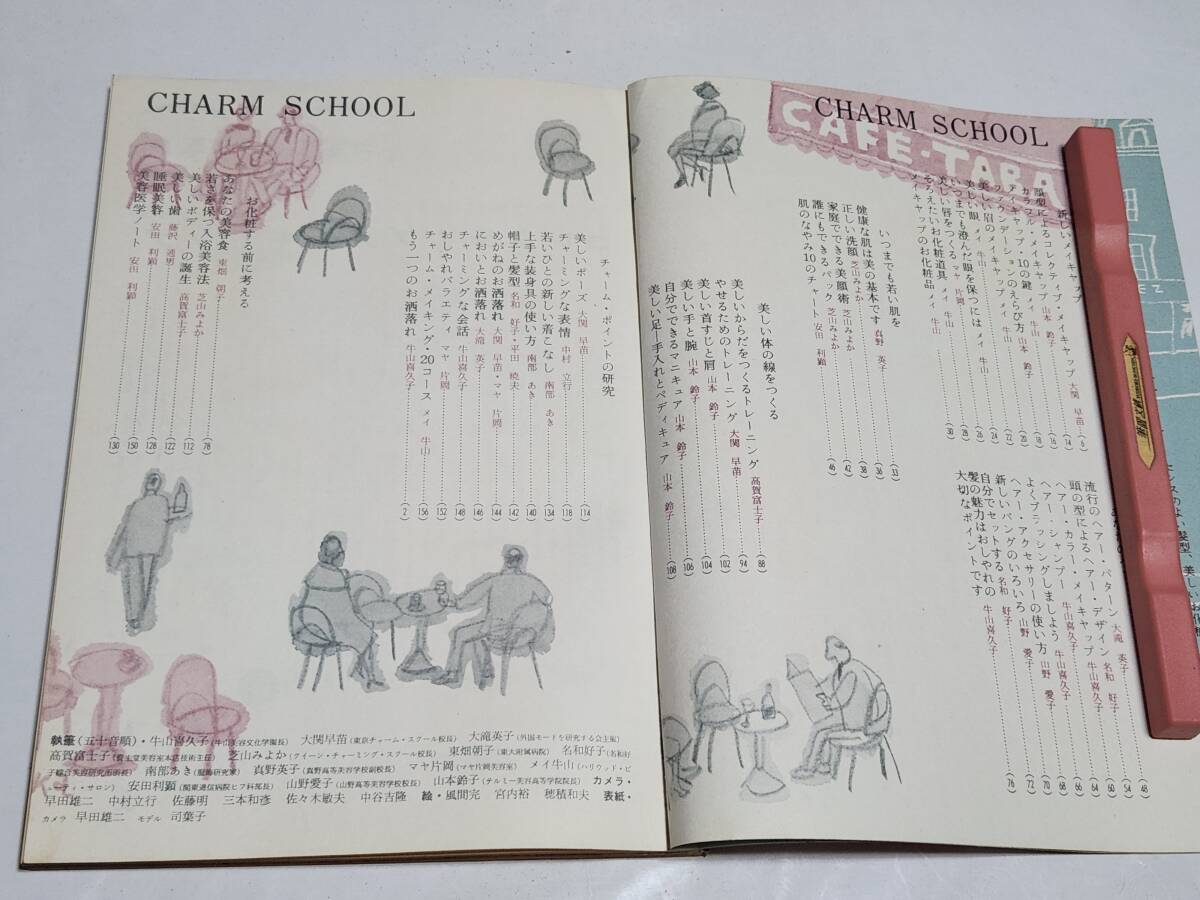 CHARM SCHOOL
CAFE・TABA
新しいメイキャップ 大関 早苗 (6)
頭型によるコレクティブ・メイキャップ (14)
カラフル・メイキャップ 山本 鈴子 (16)
ファウンデーションのえらび方 山本 鈴子 (20)
美しい眉のメイキャップ メイ 牛山 (24)
美しい眼 メイ 牛山 (26)
いつまでも澄んだ眼を保つには
美しい唇をつくる マヤ 片岡 (28)
そろえたいお化粧道具 メイ 牛山
メイキャップのお化粧品 メイ 牛山 (30)
いつまでも若い肌を (33)
健康な肌は美の基本です 真野 英子 (36)
正しい洗顔 芝山みよか (38)
家庭でできる美顔術 芝山みよか (42)
誰にもできるパック 芝山みよか
肌のなやみ10のチャート 安田 利顕 (46)
流行のヘアー・パターン 大滝 英子 (48)
頭の型によるヘアー・デザイン 名和 好子 (54)
ヘアー・カラー・メイキャップ 牛山喜久子 (60)
ヘアー・シャンプー 牛山喜久子 (64)
よくブラッシングしましよう 牛山喜久子 (66)
ヘアー・アクセサリーの使い方 山野 愛子 (68)
新しいバングのいろいろ 山野 愛子 (70)
自分でセットする 名和 好子 (72)
髪の魅力はおしゃれの
大切なポイントです 牛山喜久子 (76)
美しい体の線をつくる
美しいからだをつくるトレーニング 高賀富士子 (88)
やせるためのトレーニング 大関 早苗 (94)
美しい首すじと肩 山本 鈴子 (102)
美しい手と腕 山本 鈴子 (104)
自分でできるマニキュア 山本 鈴子 (106)
美しい足―手入れとペディキュア 山本 鈴子 (108)
CHARM SCHOOL
チャーム・ポイントの研究
美しいポーズ 大関 早苗 (114)
チャーミングな表情 中村 立行 (118)
若いひとの新しい着こなし 南部 あき (134)
上手な装身具の使い方 南部 あき (140)
帽子と髪型 名和 好子・平田 暁夫 (142)
めがねのお洒落 大関 早苗・マヤ 片岡 (144)
においとお洒落 大滝 英子 (146)
チャーミングな会話 牛山喜久子 (148)
おしやれバラエティ マヤ 片岡 (152)
チャーム・メイキング・20コース メイ 牛山 (156)
もう一つのお洒落 牛山喜久子 (2)
お化粧する前に考える
あなたの美容食 東畑 朝子 (78)
若さを保つ入浴美容法 芝山みよか (112)
美しいボディーの誕生 高賀富士子 (122)
美しい歯 藤沢 通男 (128)
睡眠美容 安田 利顕 (150)
美容医学ノート 安田 利顕 (130)
執筆(五十音順)・牛山喜久子(牛山美容文化学園長) 大関早苗(東京チャーム・スクール校長) 大滝英子(外国モードを研究する会主催)
高賀富士子(資生堂美容室本店技術主任) 芝山みよか(クイーン・チャーミング・スクール校長) 東畑朝子(東大附属病院) 名和好子(名和好
子綜合美容研究所所長) 南部あき(服飾研究家) 真野英子(真野高等美容学校副校長) マヤ片岡(マヤ片岡美容室) メイ牛山(ハリウッド・ビ
ューティ・サロン) 安田利顕(関東逓信病院ヒフ科部長) 山野愛子(山野高等美容学校校長) 山本鈴子(テルミー美容高等学院院長) カメラ・
早田雄二 中村立行 佐藤明 三本和彦 佐々木敏夫 中谷吉隆 絵・風間完 宮内裕 穂積和夫 表紙・
カメラ 早田雄二 モデル 司葉子